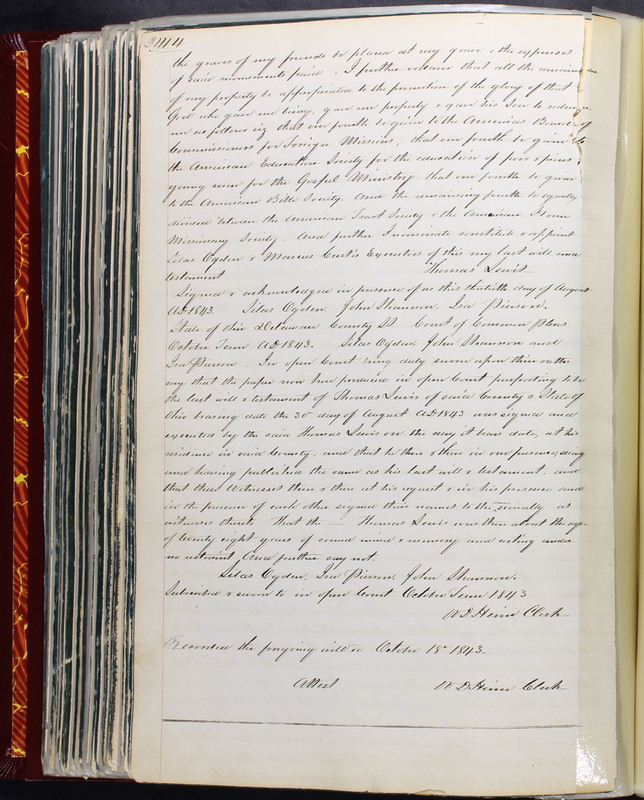 244
the graves of my friends be placed at my grave & the expenses
of said monuments paid. I further ordain that all the remainder
of my property be appropriated to the promotion of the glory of that
God who gave me being, gave me property & gave his Son to redeem
me as follows viz that one fourth be given to the American Board of
Commissioners for Foreign Missions, that one fourth be given to
the American Education Society for the education of poor & pious
young men for the Gospel Ministry. that one fourth be given
to the American Bible Society. And the remaining fourth be equally
divided between the American Tract Society & the American Home
Missionary Society. And further I nominate constitute & appoint
Silas Ogden & Marcus Curtis Executors of this my last will and
testament Thomas Lewis
Signed & acknowledged in presence of us this thirtieth day of August
AD 1843. Silas Ogden, John Shannon, Ira Pierson.
State of Ohio Delaware County SS Court of Common Pleas
October Term AD 1843. Silas Ogden, John Shannon and
Ira Pierson. In open Court being duly sworn upon their oaths
say that the paper now here produced in open Court purporting to be
the last will & testament of Thomas Lewis of said County & State of
Ohio bearing date the 30th day of August AD 1843 was signed and
executed by the said Thomas Lewis on the day it bears date, at his
residence in said County, and that he then & there in our presence, seeing
and hearing published the same as his last will & testament, and
that these Witnesses then & there at his request & in his presence and
in the presence of each other signed their names to the severally as
witnesses thereto That the Thomas Lewis was then about the age
of twenty eight years of sound mind & memory and acting under
no restraint And further say not.
Silas Ogden, Ira Pierson, John Shannon.
Subscribed & sworn to in open Court October Term 1843
W D Heim Clerk
Recorded the foregoing will on October 18th 1843.
Attest W D Heim Clerk